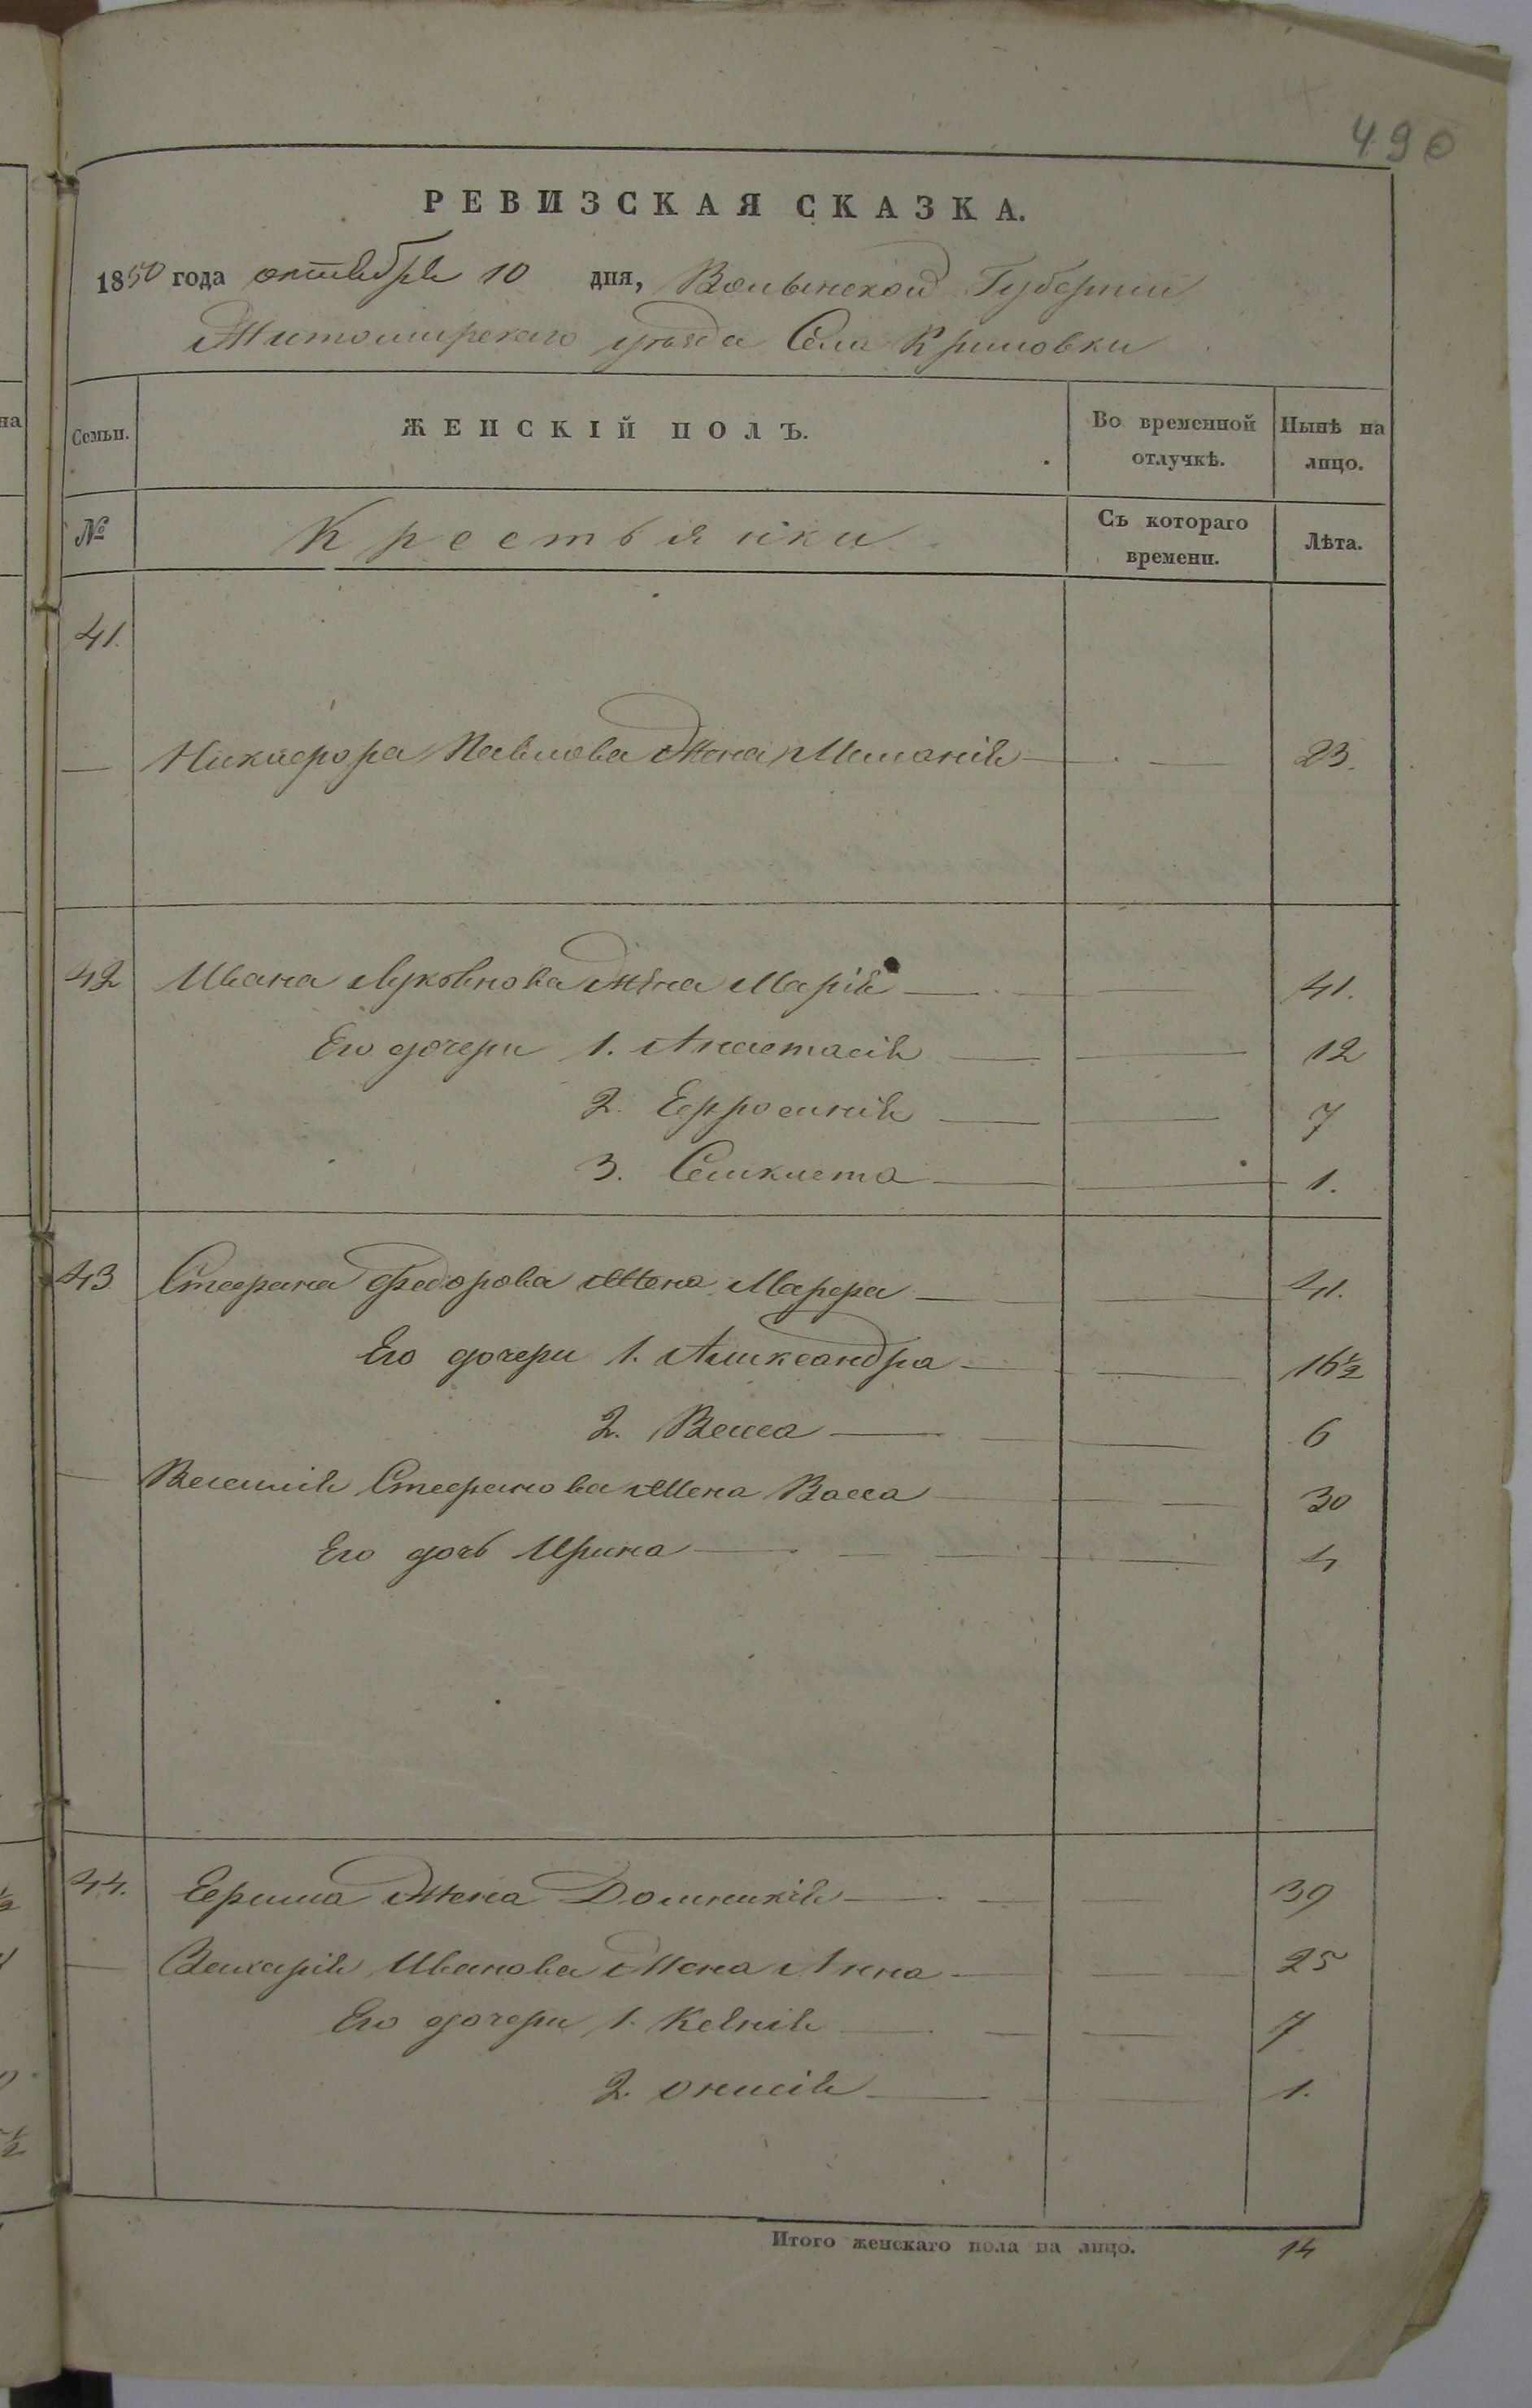 490
РЕВИЗСКАЯ СКАЗКА.
1850 года октября 10 дня, Волынской Губернии
Житомирскаго уѣзда Села Крыловки
Семьи. ЖЕНСКІЙ ПОЛЪ. Во временной отлучкѣ. Нынѣ на лицо.
№ Крестьянки Съ котораго времени. Лѣта.
41.
Никифора Павлова жена Меланія 23.
42 Ивана Луковнова жена Марія 41.
Его дочери 1. Анастасія 12
2. Ефросинія 7
3. 1.
43 Стефана Федорова жена Марфа 41.
Его дочери 1. Александра 16½
2. Васса 6
Василія Стефанова жена Васса 30
Его дочь Ирина 4
44. Ефима жена Домникія 39
Захарія Иванова жена Анна 25
Его дочери 1. Ксенія 7
2. Онисія 1.
Итого женскаго пола на лицо. 14